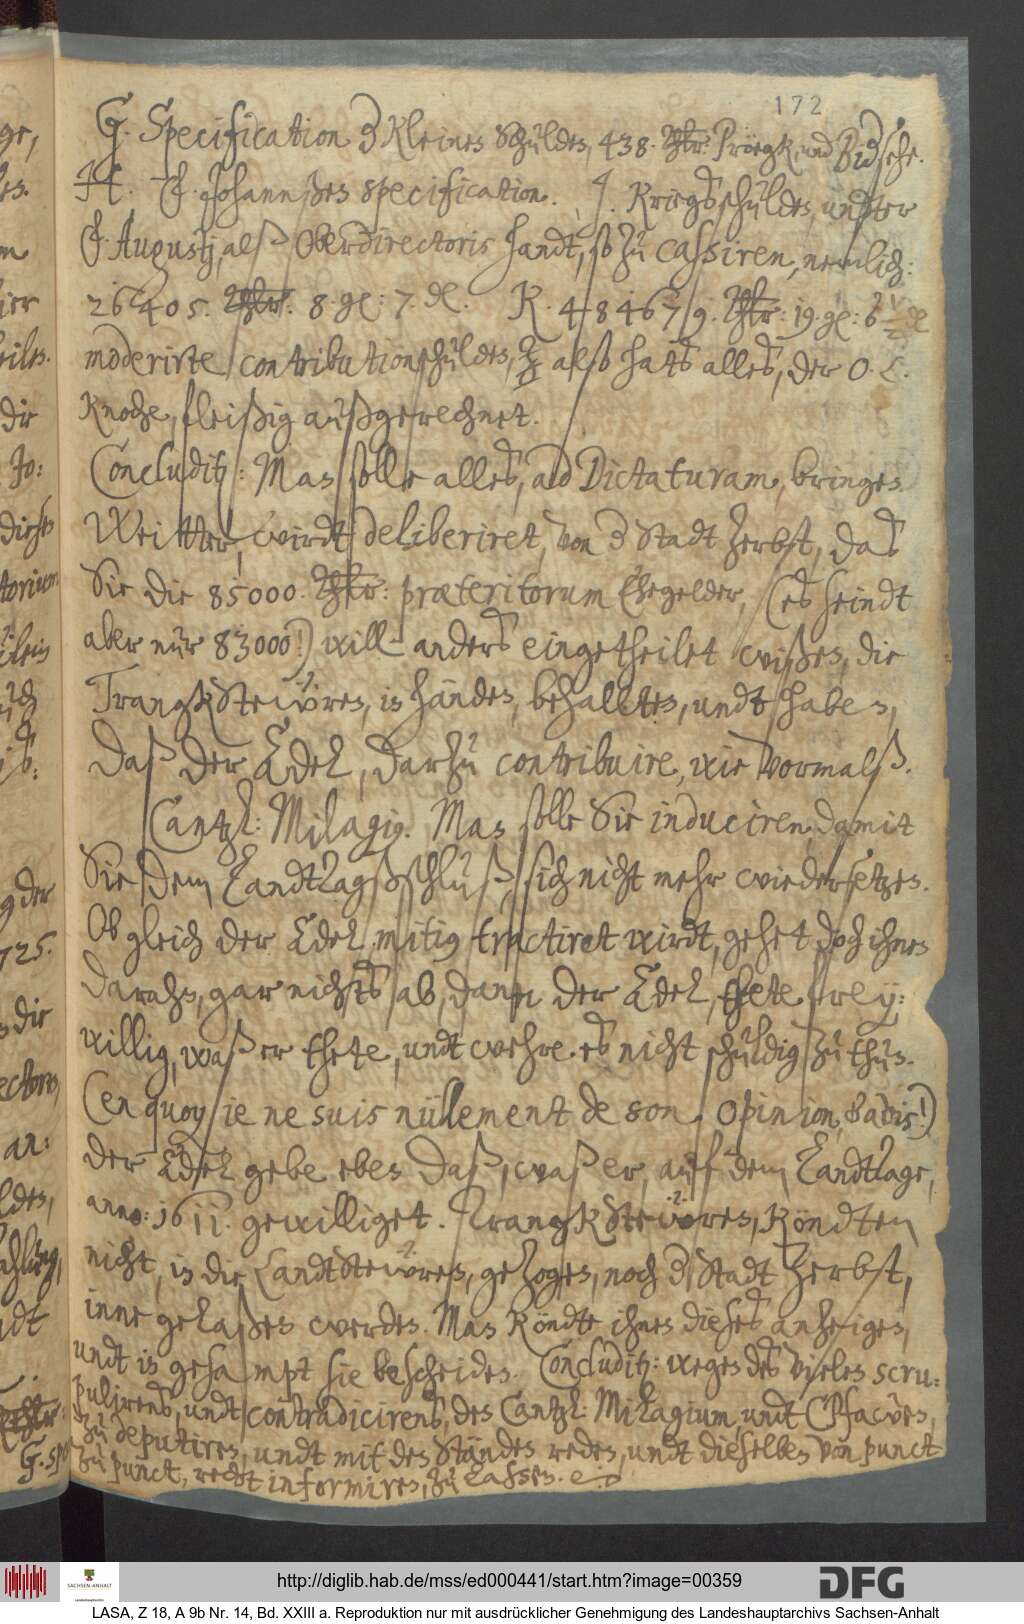 172
G. Specification d kleinen Schulden, 438. Thlr: Pröegk, und Bidsche.
H. Ch. Johanns̈en specification. J. Kriegsschulden, undter
F. Augustj, alß Oberdirectoris handt, so zu cassiren, nemlich:
26405. Thlr. 8. gl: 7. dl. K. 484679. Thlr: 19. gl: 6
moderirte contributionschulden, alß hats alles, der O. L.
Knoche, fleißig außgerechnet.
Concludit: Man solle alles, ad Dictaturam, bringen.
Weitter, wirdt deliberiret, von d Stadt Zerbst, das
Sie die 85000. Thlr: præteritorum Ehegelder, (es seindt
aber nur 83000!) will anders eingetheilet wißen, die
TrangkSteüren, in händen, behalten, undt haben,
Daß der Adel, darzu contribuire, wie vormalß.
Cantzl: Milagig. Man solle Sie induciren, damit
Sie dem LandtTagsschluß, sich nicht mehr wiedersetzen.
Ob gleich der Adel mitig tractiret wirdt, gehet doch ihnen
daran, gar nichts ab, dann der Adel, thete frey:
willig, waß er thete, undt wehre es nicht schuldig zu thun.
(en quoy je ne suis nüllement de son opinion, & advis!)
der Adel gebe eben daß, waß er, auf dem LandtTage,
anno: 1611. gewilliget. TrangkSteüren, köndten
nicht, in die LandtSteüren, gezogen, noch d Stadt Zerbst,
inne gelaßen werden. Man köndte ihnen dieses anzeigen,
undt in gesampt sie bescheiden. Concludit: wegen des vielen scru:
pulirens, undt contradicirens, den Cantzl: Milagium, undt CPfawen,
zu deputiren, undt mit den Ständen reden, undt dieselben von punct
zu punct, recht informiren, zu laßen.
http://diglib.hab.de/mss/ed000441/start.htm?image=00359
SACHSEN-ANHALT
DFG
LASA, Z 18, A 9b Nr. 14, Bd. XXIII a. Reproduktion nur mit ausdrücklicher Genehmigung des Landeshauptarchivs Sachsen-Anhalt